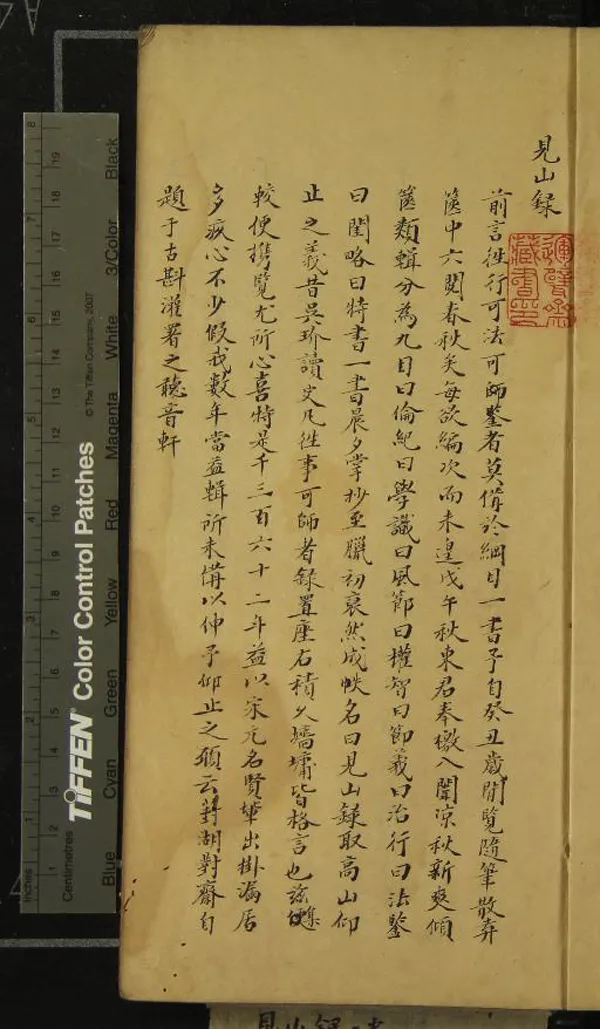 見山録
前言徃行可法可師鑒者莫備於綱目一書予自癸丑歲閒覽隨筆散弃
篋中六閱春秋矣每欲編次而未遑戊午秋東君奉檄入闈凉秋新爽傾
篋類輯分為九目曰倫紀曰學識曰風節曰權智曰節義曰治行曰法鑒
曰閨略曰特書一書晨夕掌抄至臘初裒然成帙名曰見山録取高山仰
止之義昔吳玠讀史凡徃事可師者録置座右積久墻墉皆格言也茲
較便携覽尤所心喜特是千三百六十二年益以宋元名賢輩出掛漏居
多疚心不少假我數年當益輯所未備以伸予仰止之願云對湖對齋自
題于古斟灌署之聽音軒
藏書
見山録
TIFFEN® Color Control Patches
© The Tiffen Company, 2007
Centimetres
Inches
Blue
Cyan
Green
Yellow
Red
Magenta
White
3/Color
Black
1 2 3 4 5 6 7 8 9 10 11 12 13 14 15 16 17 18 19
1 2 3 4 5 6 7 8